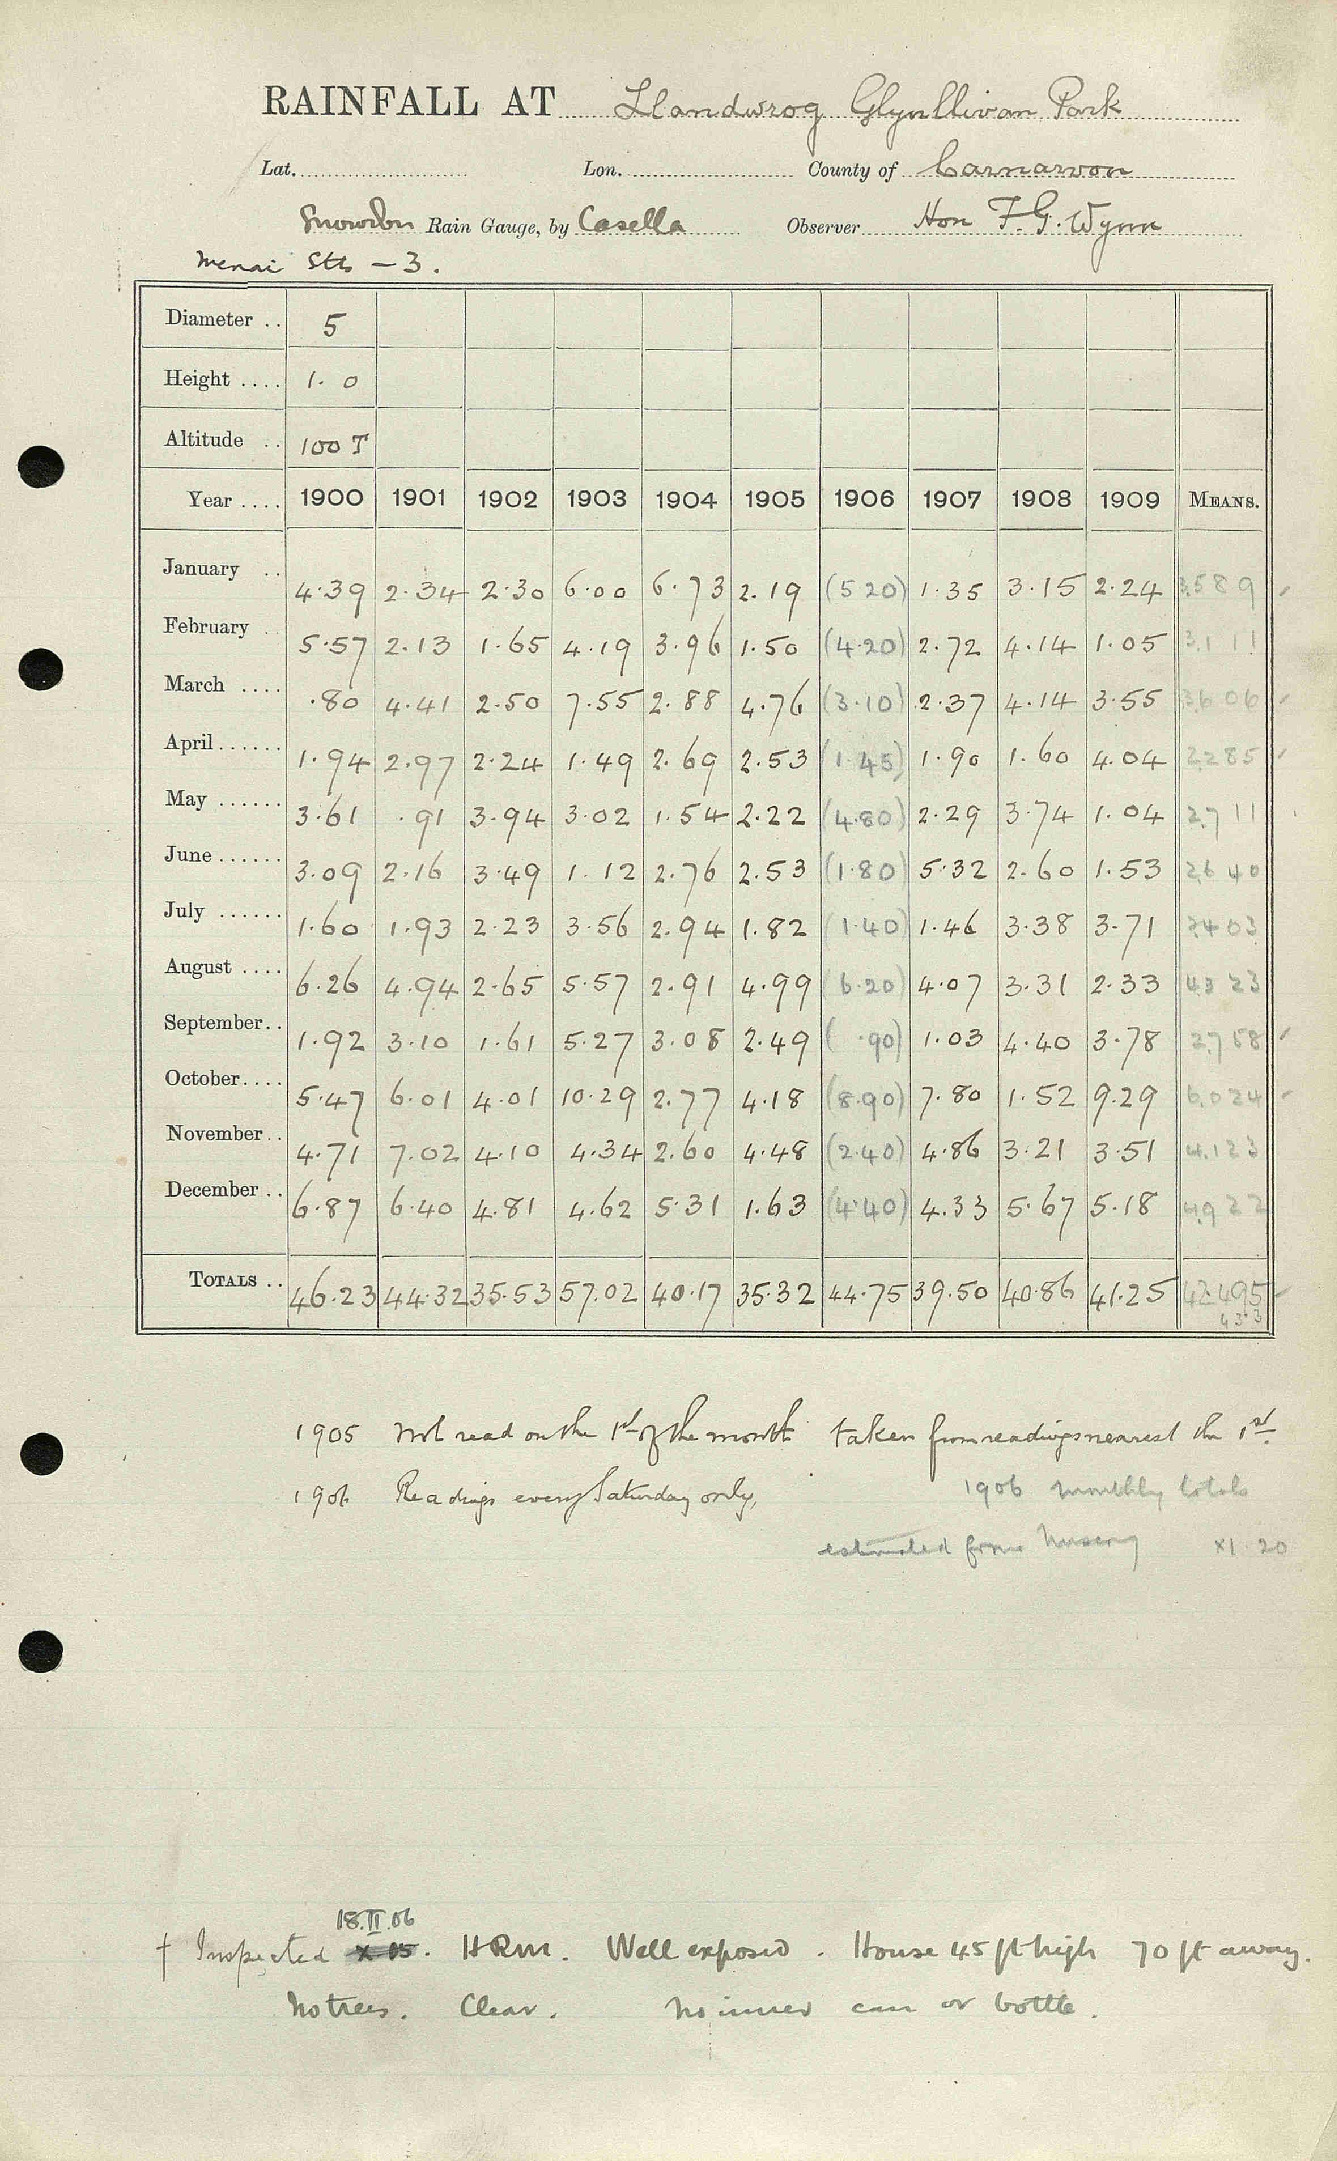 RAINFALL AT Llandwrog Glynllivon Park
Lat. Lon. County of Carnarvon
Snowdon Rain Gauge, by Casella Observer Hon F. G. Wynn
Menai Stts - 3.
Diameter .. 5
Height .... 1. 0
Altitude .. 100 T
Year .... 1900 1901 1902 1903 1904 1905 1906 1907 1908 1909 MEANS.
January .. 4.39 2.34 2.30 6.00 6.73 2.19 (5 20) 1.35 3.15 2.24 3.589
February .. 5.57 2.13 1.65 4.19 3.96 1.50 (4.20) 2.72 4.14 1.05 3.111
March .... .80 4.41 2.50 7.55 2.88 4.76 (3.10) 2.37 4.14 3.55 3.606
April ...... 1.94 2.97 2.24 1.49 2.69 2.53 (1.45) 1.90 1.60 4.04 2.285
May ...... 3.61 .91 3.94 3.02 1.54 2.22 (4.80) 2.29 3.74 1.04 2.711
June ...... 3.09 2.16 3.49 1.12 2.76 2.53 (1.80) 5.32 2.60 1.53 2.640
July ...... 1.60 1.93 2.23 3.56 2.94 1.82 (1.40) 1.46 3.38 3.71 2.403
August .... 6.26 4.94 2.65 5.57 2.91 4.99 (6.20) 4.07 3.31 2.33 4.323
September.. 1.92 3.10 1.61 5.27 3.08 2.49 (.90) 1.03 4.40 3.78 2.758
October.... 5.47 6.01 4.01 10.29 2.77 4.18 (8.90) 7.80 1.52 9.29 6.024
November.. 4.71 7.02 4.10 4.34 2.60 4.48 (2.40) 4.86 3.21 3.51 4.123
December .. 6.87 6.40 4.81 4.62 5.31 1.63 (4.40) 4.33 5.67 5.18 4.922
TOTALS .. 46.23 44.32 35.53 57.02 40.17 35.32 44.75 39.50 40.86 41.25 42.495
1905 Not read on the 1st of the month taken from readings nearest the 1st.
1906 Readings every Saturday only,
1906 monthly totals
estimated from Nursery x1.20
18.II.06
† Inspected . HRM. Well exposed. House 45 ft high 70 ft away.
No trees. Clear. No inner can or bottle.